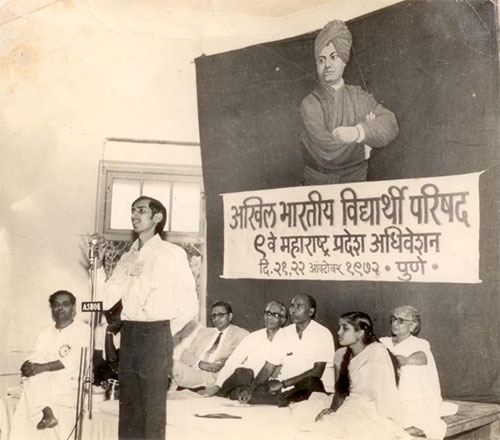 अखिल भारतीय विद्यार्थी परिषद
९ वे महाराष्ट्र प्रदेश अधिवेशन
दि. २१,२२ ऑक्टोबर १९७२ • पुणे •